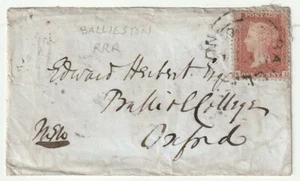 BALLIESTON
RRR
POSTAGE
Edward Herbert Esq
Balliol College
Oxford